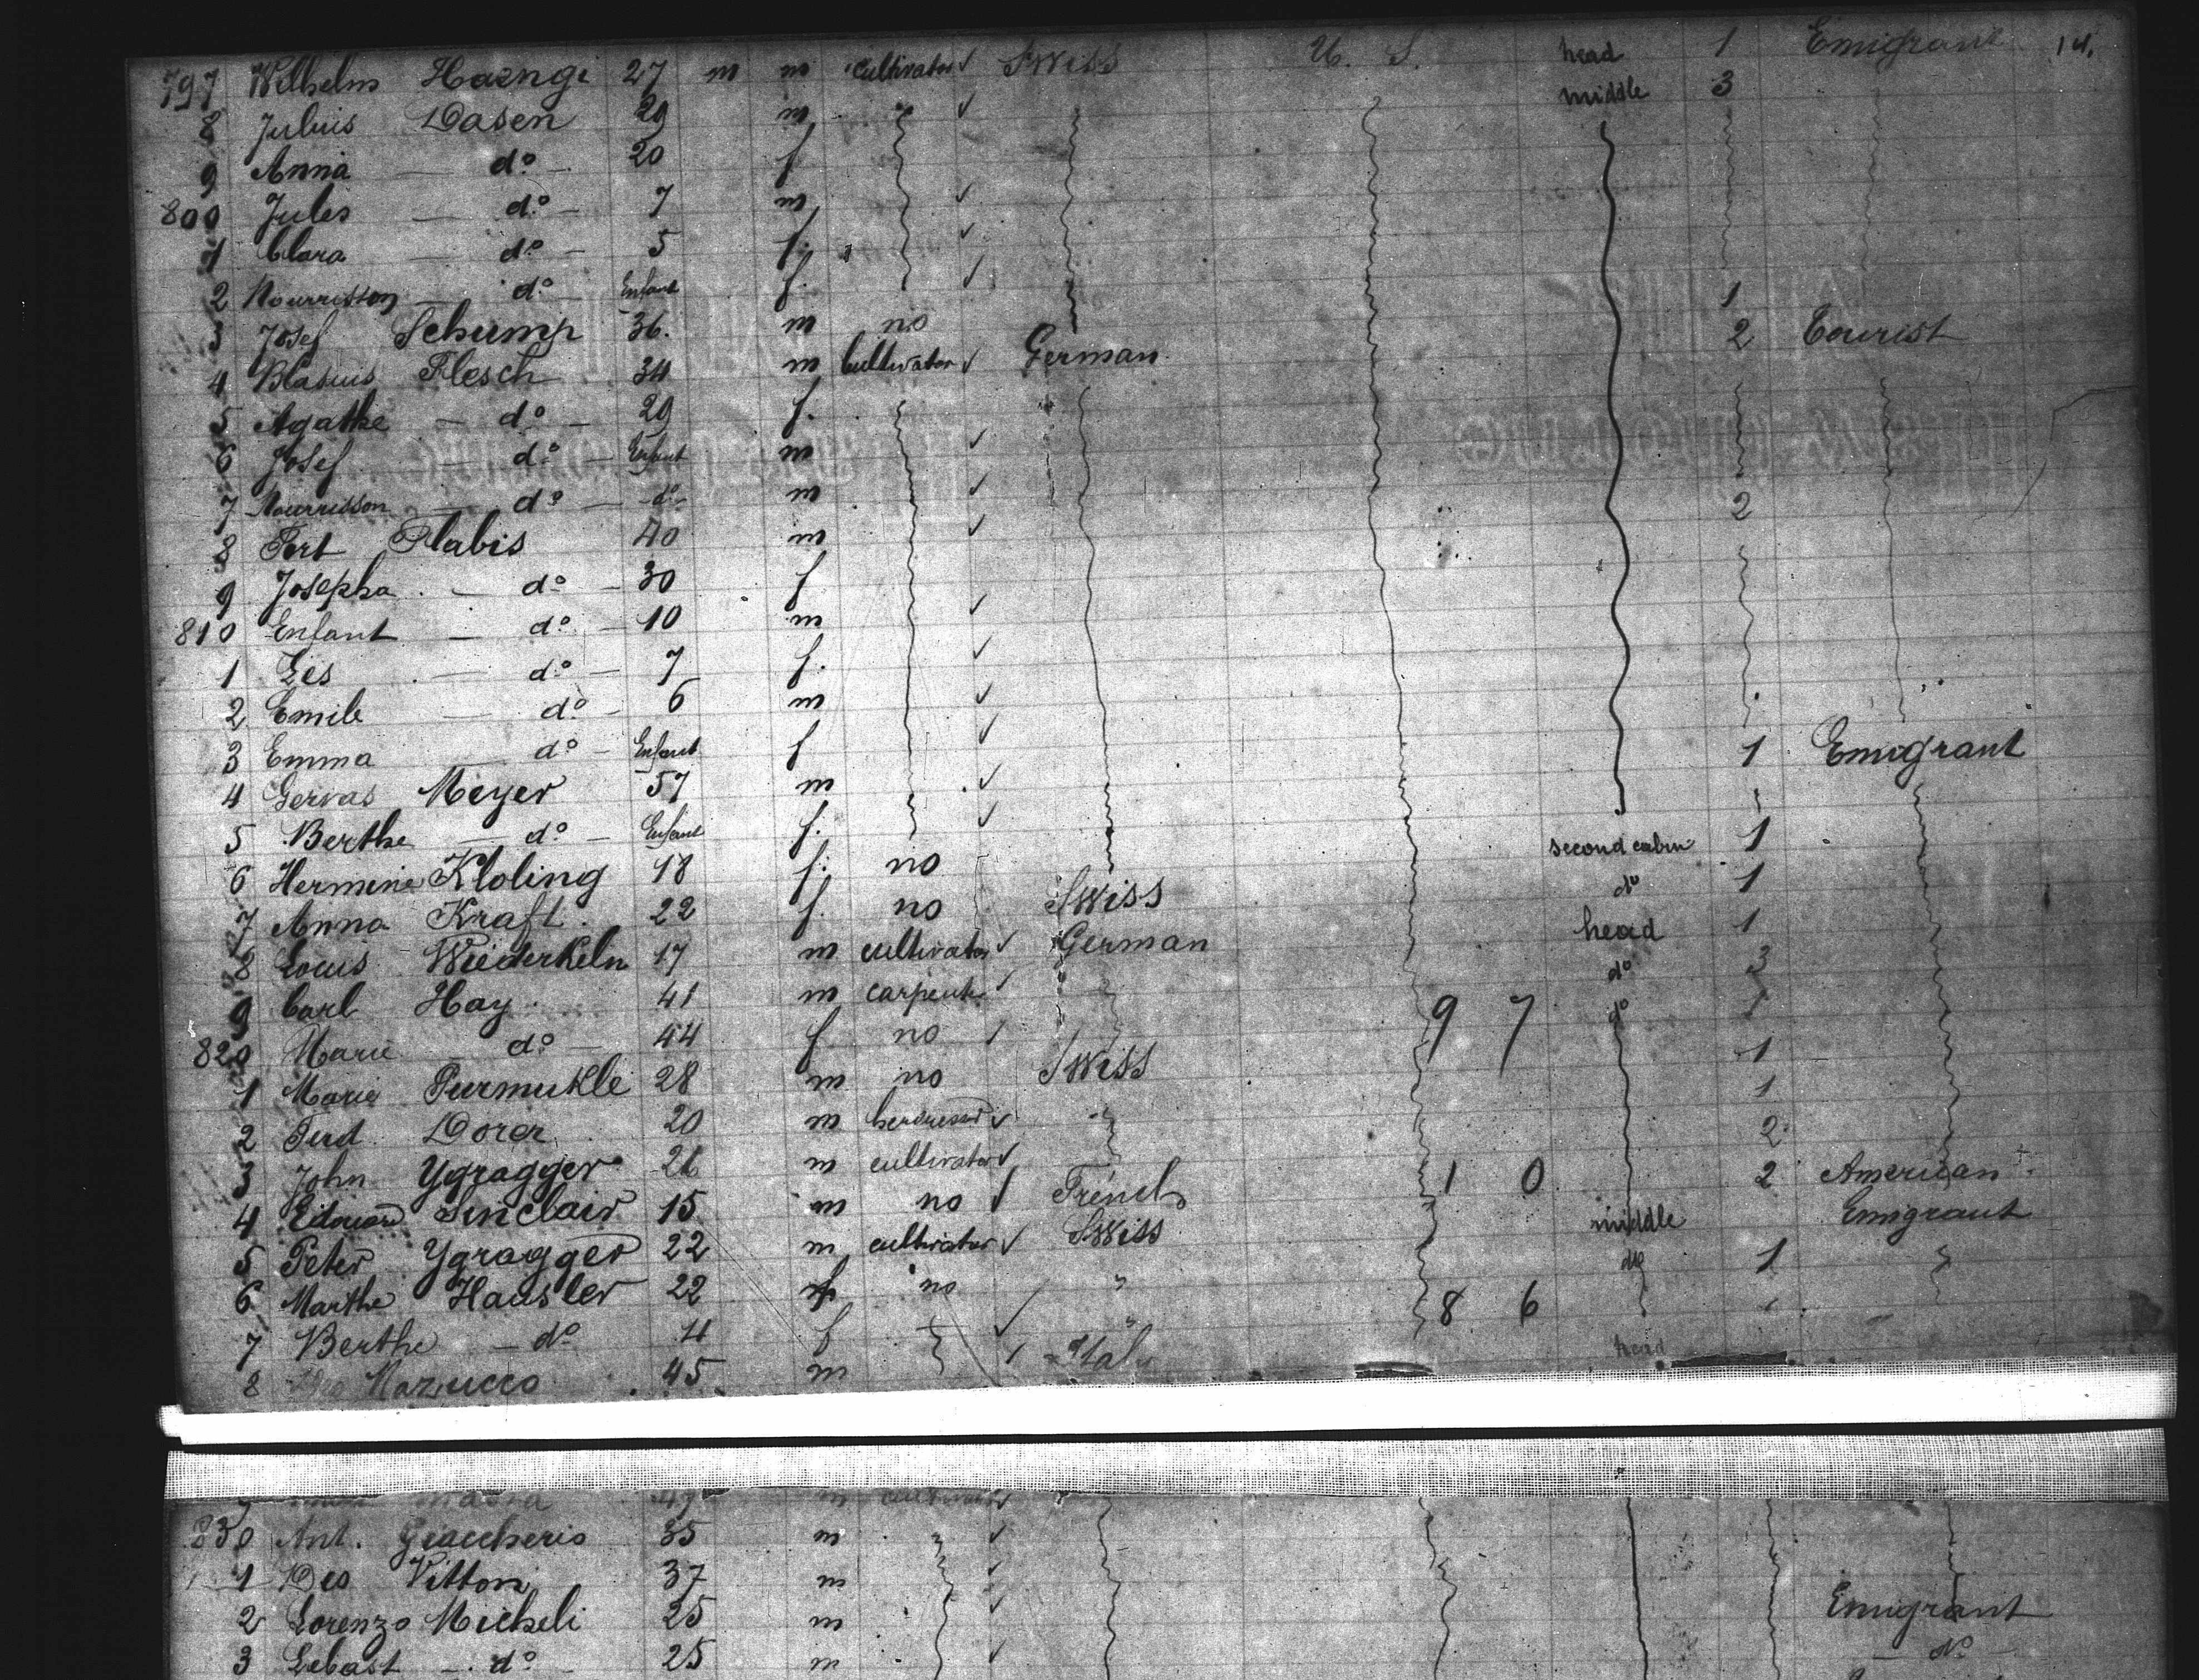 797 Wilhelm Haenge 27 m m cultivator ✓ Swiss U. S. head 1 Emigrant 14.
8 Julius Dasen 29 m ✓ middle 3
9 Anna — do — 20 f
800 Jules — do — 7 m ✓
1 Clara — do — 5 f. ✓
2 Nourrisson — do Enfant f. ✓ 1
3 Josef Schump 36. m no 2 Tourist
4 Blasius Flesch 34 m Cultivator ✓ German
5 Agathe — do — 29 f.
6 Josef — do — Enfant m ✓
7 Nourrisson — do — do — m ✓ 2
8 Fert Plabis 40 m ✓
9 Josepha — do — 30 f
810 Enfant — do — 10 m ✓
1 Lis — do — 7 f. ✓
2 Emile — do — 6 m ✓
3 Emma — do — Enfant f ✓ 1 Emigrant
4 Gervas Meyer 57 m ✓
5 Berthe — do — Enfant f. ✓ second cabin 1
6 Hermine Kloling 18 f. no do 1
7 Anna Kraft 22 f. no Swiss head 1
8 Louis Wiederkeln 17 m cultivator ✓ German do 3
9 Carl Hay 41 m carpent. ✓ 9 7 do 1
820 Marie — do — 44 f no 1
1 Marie Purmukle 28 m no Swiss 1
2 Ferd Dorer 20 m ✓ " 2
3 John Ygragger 26 m cultivator ✓ 1 0 2 American
4 Edouard Sinclair 15 m no ✓ French middle Emigrant
5 Peter Ygragger 22 m cultivator ✓ Swiss do 1
6 Marthe Hausler 22 f no " 8 6
7 Berthe — do 4 f ✓ "
8 Mazucco 45 m Ital head
830 Ant. Giaccheris 35 m ✓
1 Des Vitton 37 m ✓
2 Lorenzo Micheli 25 m ✓ Emigrant
3 Sebast — do — 25 m ✓ — do —